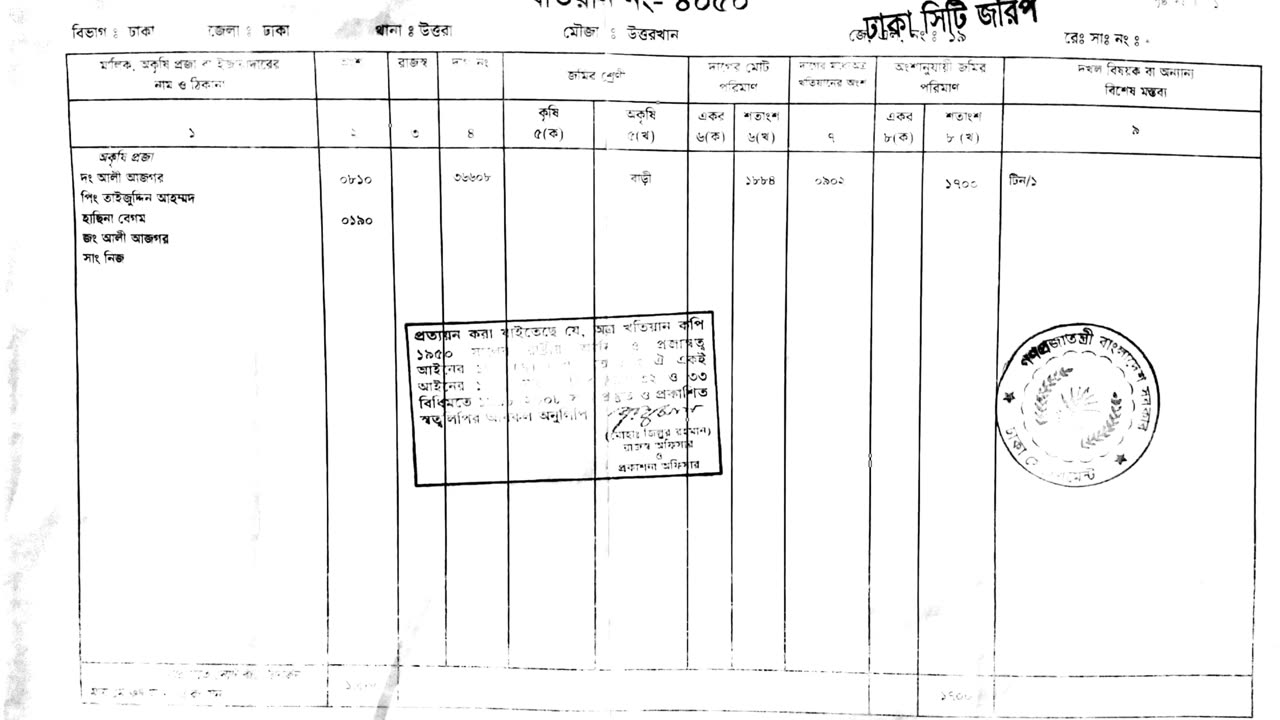 খতিয়ান নং- ৪০৫০
ঢাকা সিটি জরিপ
বিভাগ ঃ ঢাকা জেলা ঃ ঢাকা থানা ঃ উত্তরা মৌজা ঃ উত্তরখান নং ঃ ১৯ রেঃ সাঃ নং ঃ
মালিক, অকৃষি প্রজা বা ইজারাদারের
নাম ও ঠিকানা
অংশ
রাজস্ব
দাগ নং
জমির শ্রেণী
দাগের মোট
পরিমাণ
দাগের মধ্যে অত্র
খতিয়ানের অংশ
অংশানুযায়ী জমির
পরিমাণ
দখল বিষয়ক বা অন্যান্য
বিশেষ মন্তব্য
কৃষি অকৃষি একর শতাংশ একর শতাংশ
১ ২ ৩ ৪ ৫(ক) ৫(খ) ৬(ক) ৬(খ) ৭ ৮(ক) ৮(খ) ৯
অকৃষি প্রজা
দং আলী আজগর ০৮১০ ৩৬৬০৮ বাড়ী ১৮৮৪ ০৯০২ ১৭০০ টিন/১
পিং তাইজুদ্দিন আহম্মদ
হাছিনা বেগম ০১৯০
জং আলী আজগর
সাং নিজ
প্রত্যয়ন করা যাইতেছে যে, অত্র খতিয়ান কপি
১৯৫০ ও প্রজাস্বত্ব
আইনের ঐ একই
আইনের ৩২ ও ৩৩
বিধিমতে প্রস্তুত ও প্রকাশিত
স্বত্বলিপির অনুলিপি
(মোহাঃ জিল্লুর রহমান)
রাজস্ব অফিসার
ও
প্রকাশনা অফিসার
গণপ্রজাতন্ত্রী বাংলাদেশ সরকার
ঢাকা
১৭০০